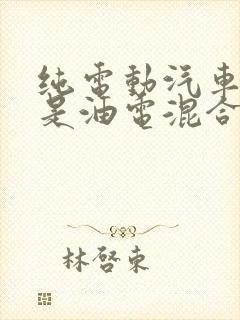 纯電動汽車
是油電混合
林啓東